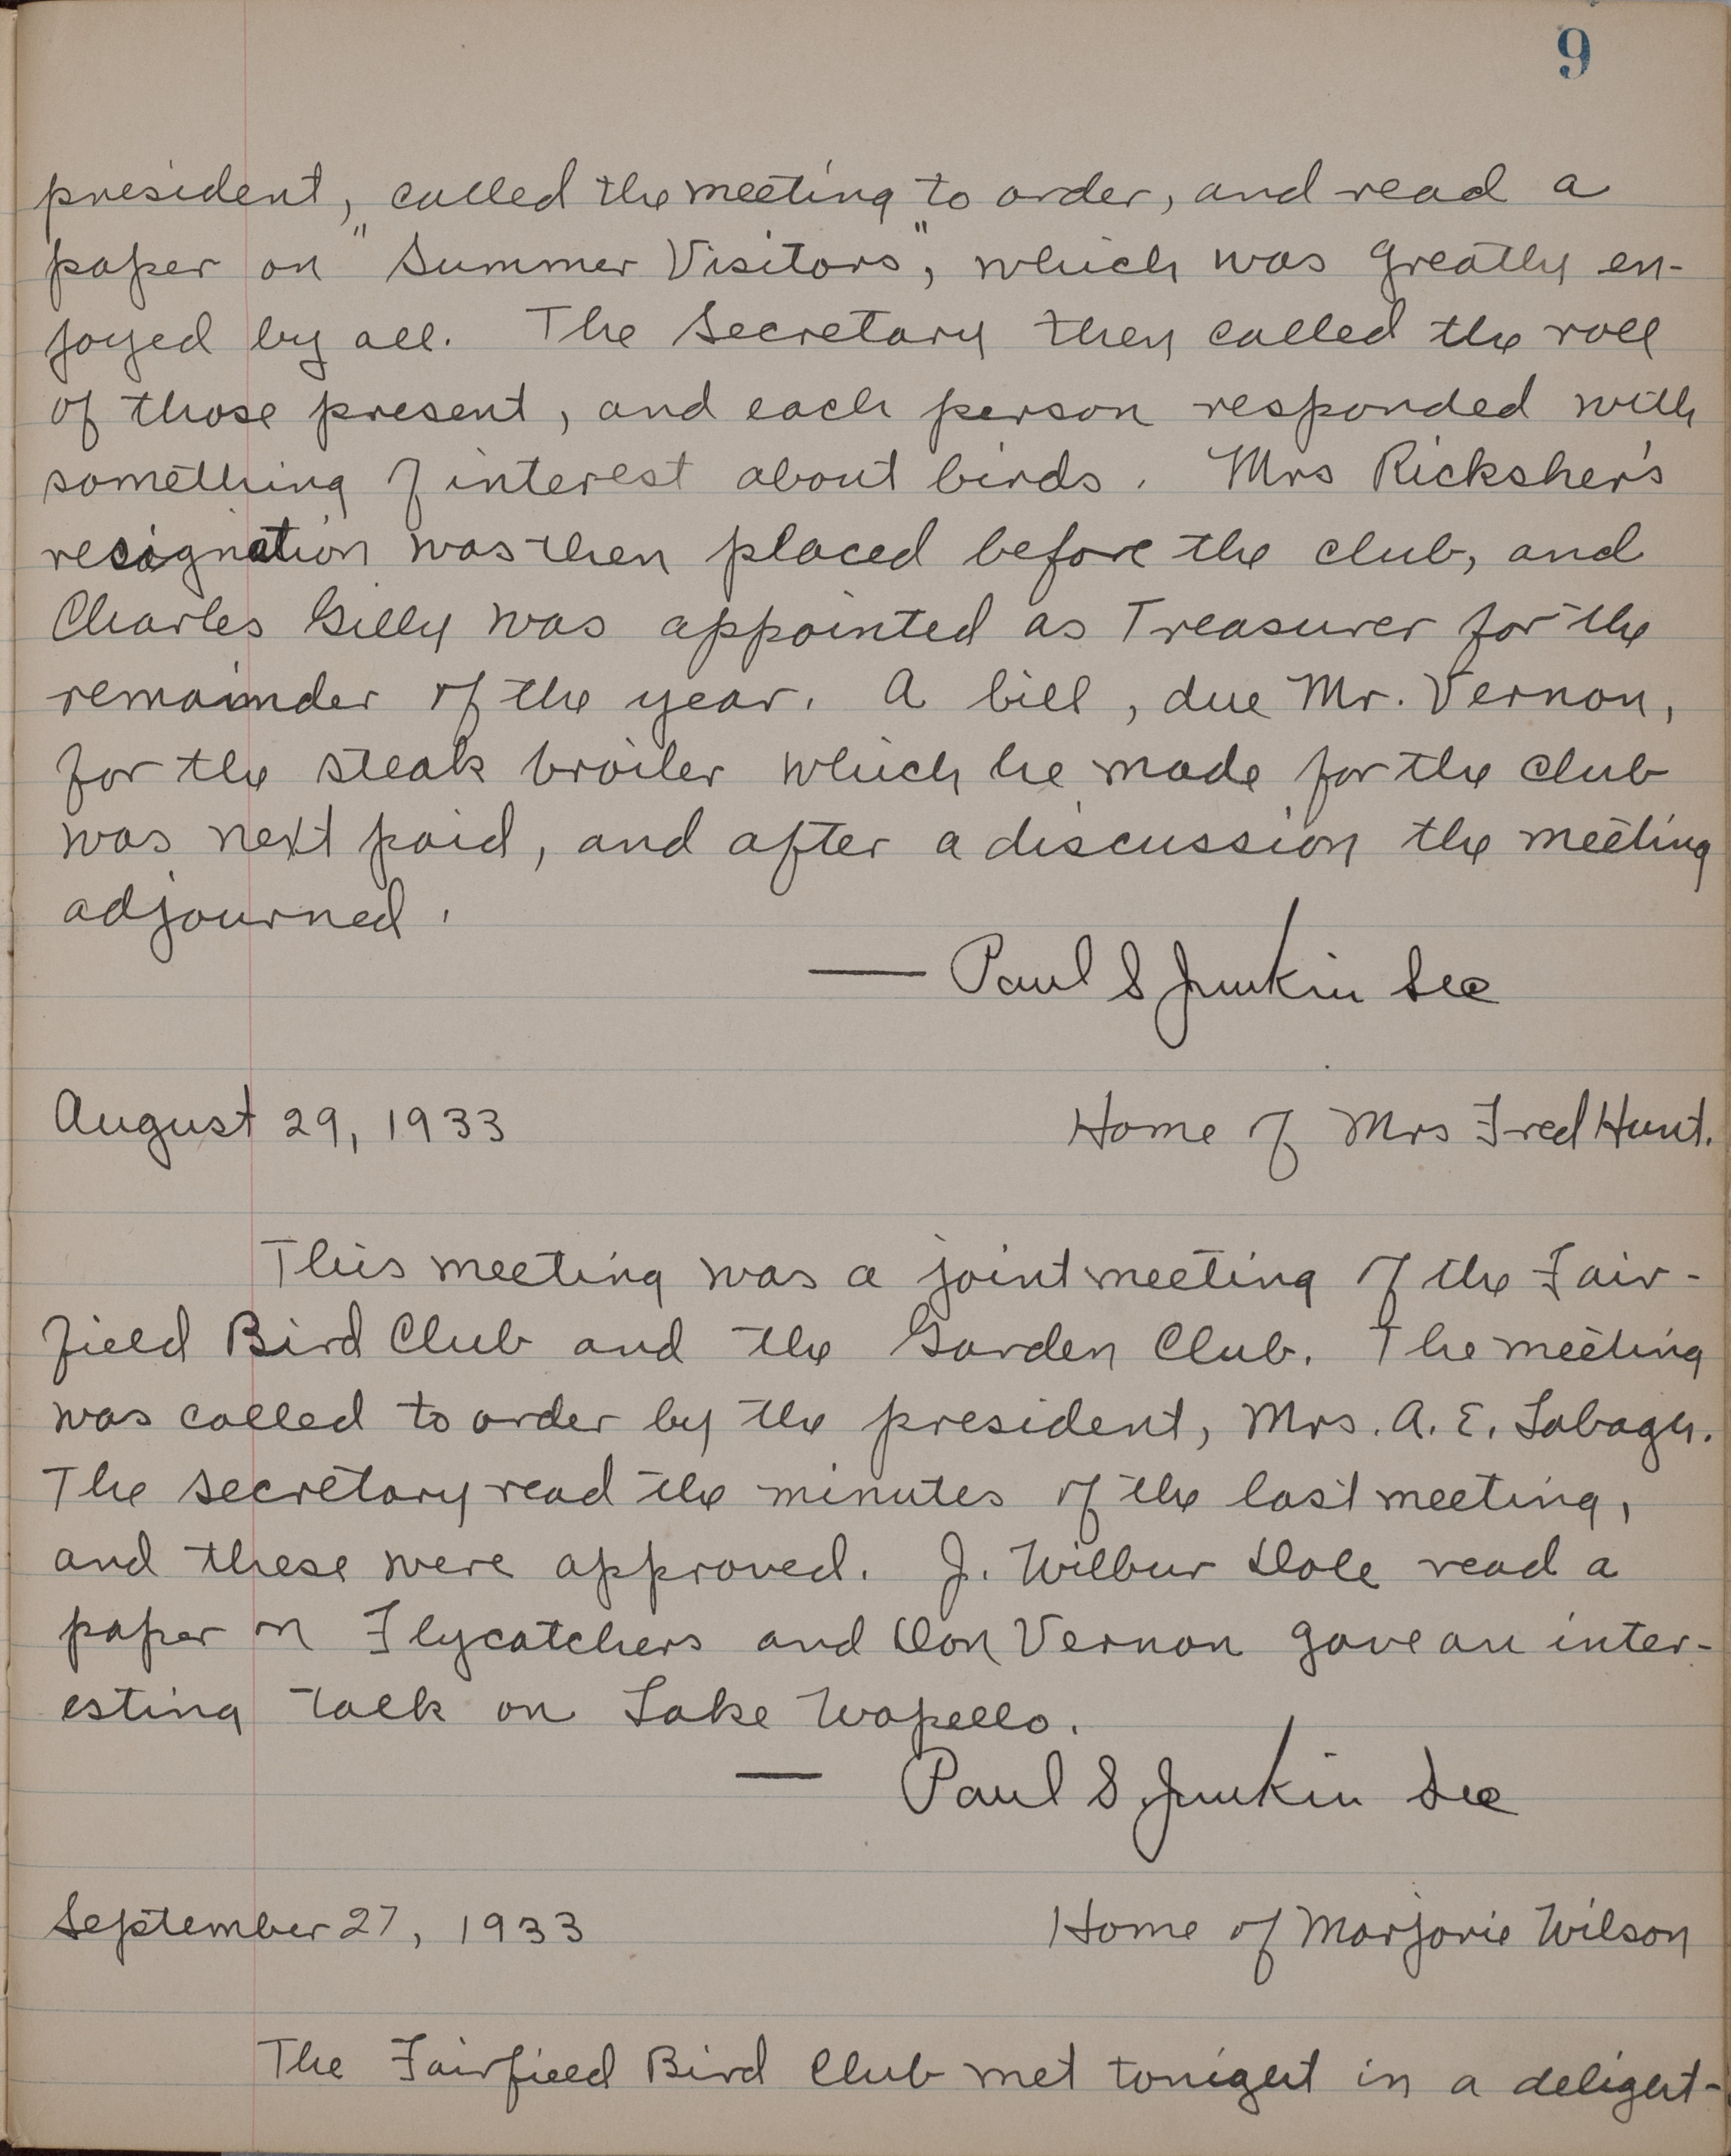 9
president, called the meeting to order, and read a
paper on "Summer Visitors", which was greatly en-
joyed by all. The Secretary then called the roll
of those present, and each person responded with
something of interest about birds. Mrs Ricksher's
resignation was then placed before the club, and
Charles Gilly was appointed as Treasurer for the
remainder of the year. A bill, due Mr. Vernon,
for the steak broiler which he made for the club
was next paid, and after a discussion the meeting
adjourned.
— Paul S Junkin Sec
August 29, 1933 Home of Mrs Fred Hunt.
This meeting was a joint meeting of the Fair-
field Bird Club and the Garden Club. The meeting
was called to order by the president, Mrs. A. E. Labagh.
The secretary read the minutes of the last meeting,
and these were approved. J. Wilbur Dole read a
paper on Flycatchers and Don Vernon gave an inter-
esting talk on Lake Wapello.
— Paul S. Junkin Sec
September 27, 1933 Home of Marjorie Wilson
The Fairfield Bird Club met tonight in a delight-